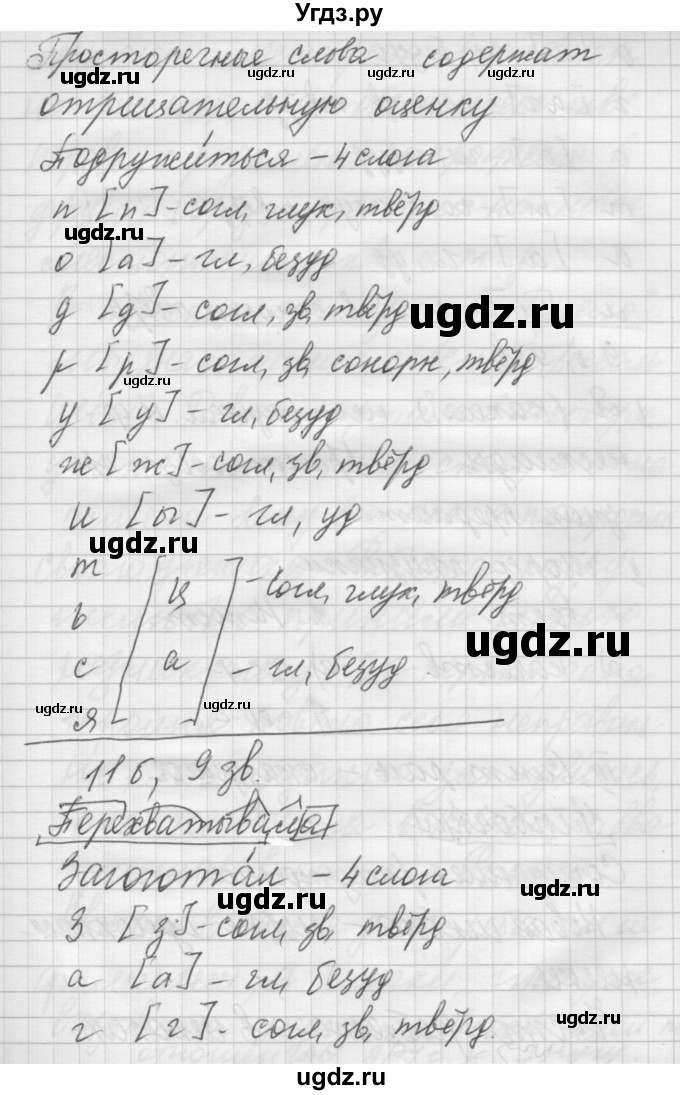 Угдз.ру
Просторечные слова содержат
ugdz.ru ugdz.ru ugdz.ru
отрицательную оценку
Подружи́ться – 4 слога
п [п] – согл, глух, твёрд
ugdz.ru
о [а] – гл, безуд
д [д] – согл, зв, твёрд
ugdz.ru
р [р] – согл, зв, сонорн, твёрд
ugdz.ru
у [у] – гл, безуд
ж [ж] – согл, зв, твёрд
и [ы] – гл, уд
ugdz.ru
т [ц – согл, глух, твёрд
ь
ugdz.ru
с а] – гл, безуд
ugdz.ru ugdz.ru
я
11 б, 9 зв.
Перехватывала
Загогота́л – 4 слога
ugdz.ru ugdz.ru
з [з] – согл, зв, твёрд
а [а] – гл, безуд
г [г] – согл, зв, твёрд.
ugdz.ru
ugdz.ru